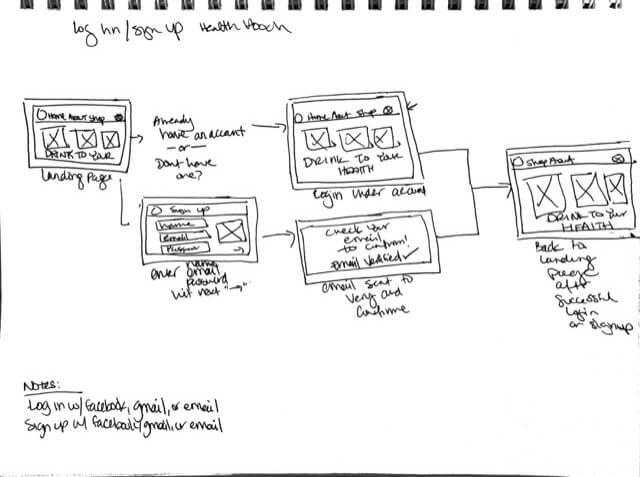 Log In/sign up Health Hooch
Home About Shop
DRINK TO YOUR
Landing Page
Already
have an account
— or —
Don't have
one?
Home About Shop
DRINK TO YOUR
HEALTH
Login under account
Sign up
name
email
enter name
email
password
hit next "→"
Check your
email
to confirm!
email verified ✓
email sent to
verify and
Shop About
DRINK TO YOUR
HEALTH
Back to
Landing
page
after
successful
login
or signup
Notes:
Log in w/ Facebook, gmail, or email
Sign up w/ Facebook/gmail, or email